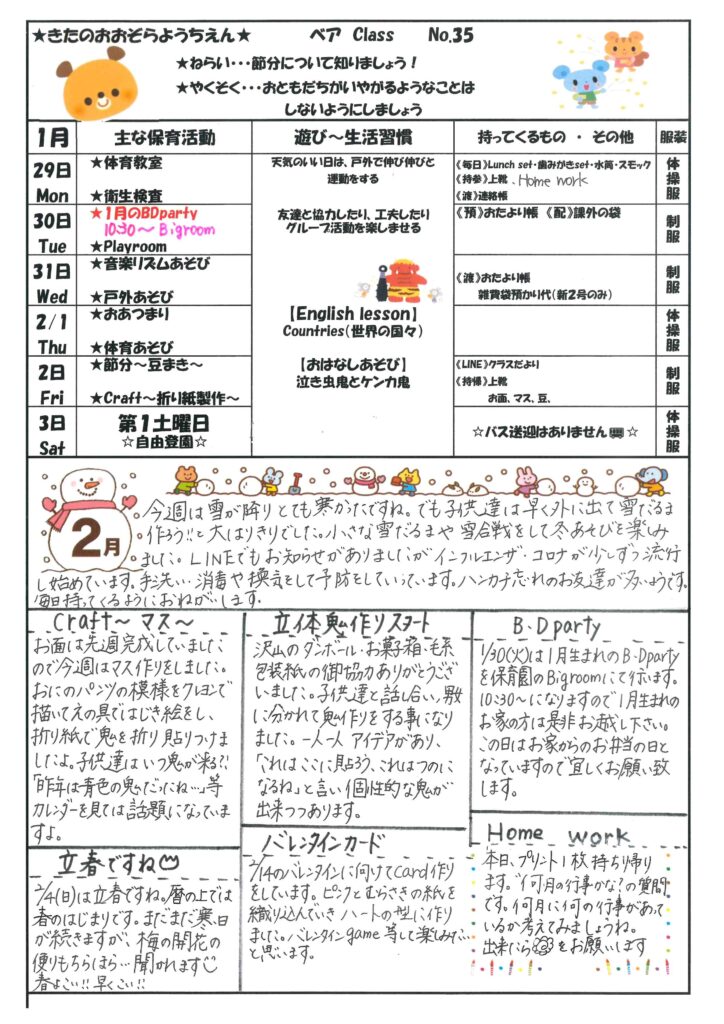 ★きたのおおぞらようちえん★ ベア Class No.35
★ねらい・・・節分について知りましょう！
★やくそく・・・おともだちがいやがるようなことは
しないようにしましょう
1月 主な保育活動 遊び～生活習慣 持ってくるもの ・ その他 服装
29日 Mon
★体育教室
★衛生検査
天気のいい日は、戸外で伸び伸びと
運動をする
《毎日》Lunch set・歯みがきset・水筒・スモック
《持参》上靴、Home work
《渡》連絡帳
体操服
30日 Tue
★1月のBDparty
10:30～Bigroom
★Playroom
友達と協力したり、工夫したり
グループ活動を楽しませる
《預》おたより帳 《配》課外の袋
制服
31日 Wed
★音楽リズムあそび
★戸外あそび
《渡》おたより帳
雑貨袋預かり代(新2号のみ)
制服
2/1 Thu
★おあつまり
★体育あそび
【English lesson】
Countries(世界の国々)
体操服
2日 Fri
★節分～豆まき～
★Craft～折り紙製作～
【おはなしあそび】
泣き虫鬼とケンカ鬼
《LINE》クラスだより
《持帰》上靴
お面、マス、豆、
制服
3日 Sat
第1土曜日
☆自由登園☆
☆バス送迎はありません☆
体操服
2月
今週は雪が降りとても寒かったですね。でも子供達は早く外に出て雪だるま
作ろう!!と大はりきりでした。小さな雪だるまや雪合戦をして冬あそびを楽しみ
ました。LINEでもお知らせがありましたがインフルエンザ・コロナが少しずつ流行
し始めています。手洗い・消毒や換気をして予防をしていっています。ハンカチ忘れのお友達が多いようです。
毎日持ってくるようにおねがいします。
Craft～マス～
お面は先週完成していました
ので今週はマス作りをしました。
おにのパンツの模様をクレヨンで
描いてえの具ではじき絵をし、
折り紙で鬼を折り貼りつけ
ましたよ。子供達はいつ鬼が来る?!
「昨年は青色の鬼だったね…」等
カレンダーを見ては話題になっていま
すよ。
立体鬼作りスタート
沢山のダンボール・お菓子箱・毛糸
包装紙の御協力ありがとうござ
いました。子供達と話し合い、男女
に分かれて鬼作りをする事になり
ました。一人一人アイデアがあり、
「これはここに貼ろう、これはつのに
なるね」と言い個性的な鬼が
出来つつあります。
B・Dparty
1/30(火)は1月生まれのB・Dparty
を保育園のBigroomにて行います。
10:30～になりますので1月生まれの
お家の方は是非お越し下さい。
この日はお家からのお弁当の日と
なっていますので宜しくお願い致
します。
立春ですね
2/4(日)は立春ですね。暦の上では
春のはじまりです。まだまだ寒い日
が続きますが、梅の開花の
便りもちらほら…聞かれます
春よこい!!早くこい!!
バレンタインカード
2/14のバレンタインに向けてcard作り
をしています。ピンクとむらさきの紙を
織り込んでいきハートの型に作り
ました。バレンタインgame等して楽しみたい
と思います。
Home work
本日、プリント1枚持ち帰り
ます。"何月の行事かな?の質問
です。何月に何の行事があって
いるか考えてみましょうね。
出来たらをお願いします